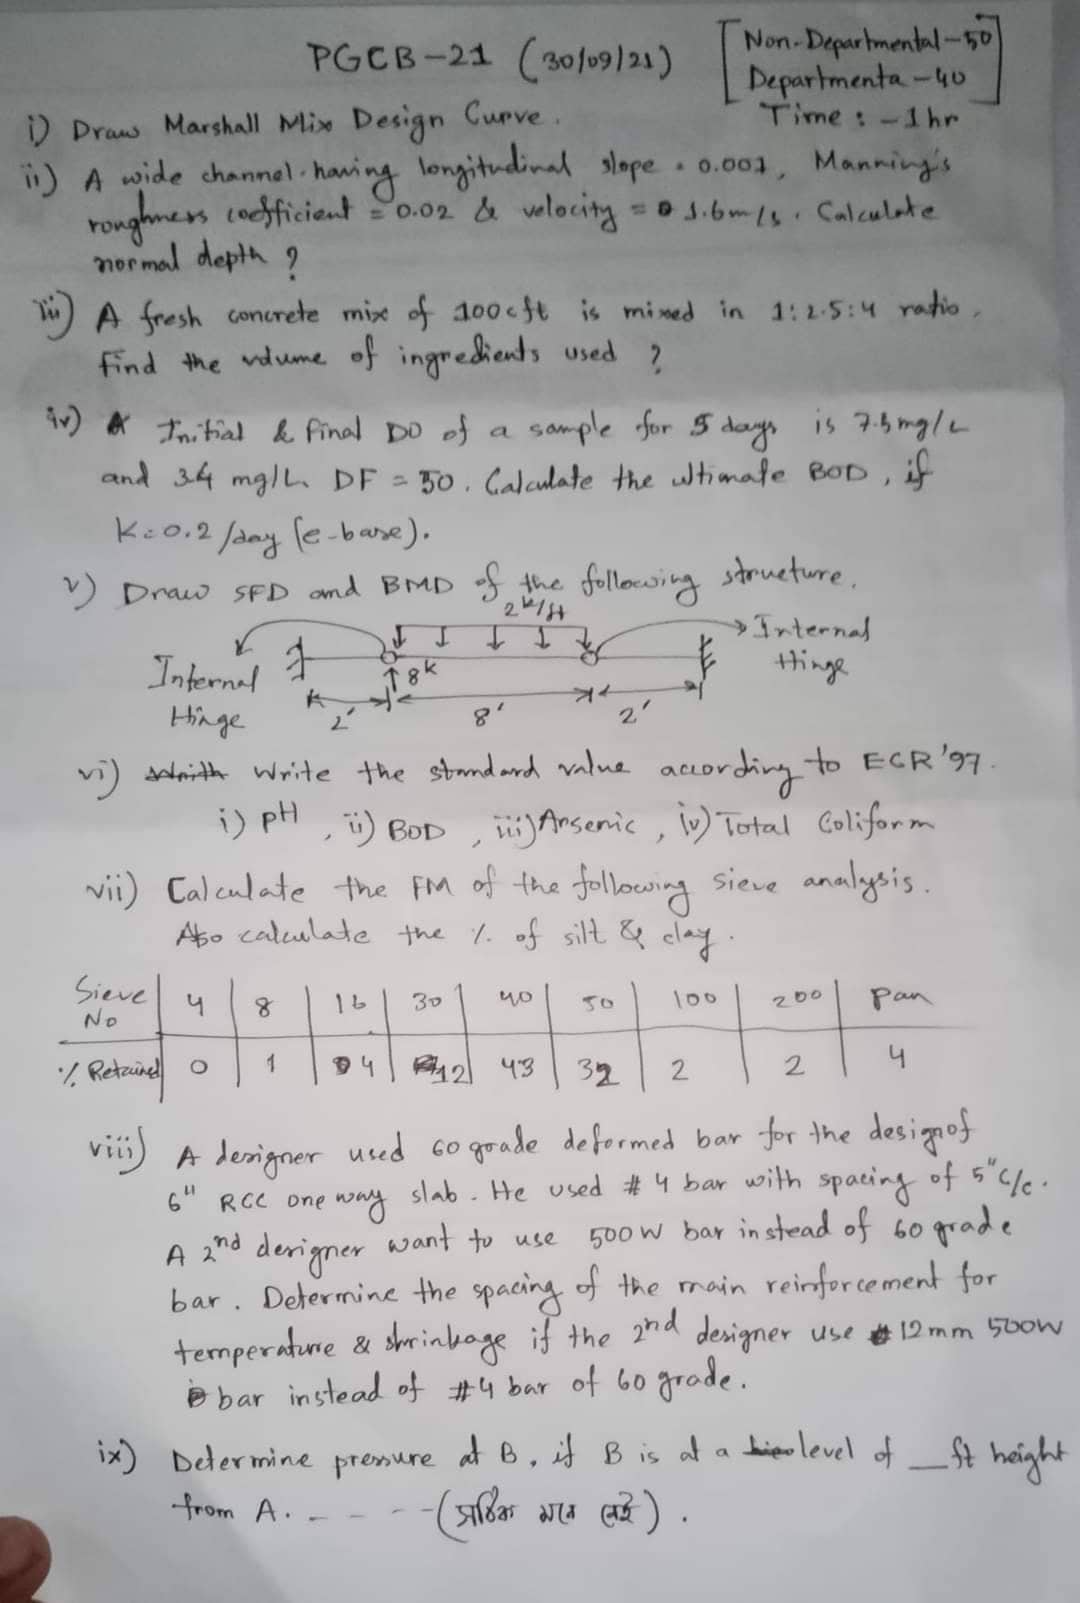 PGCB-21 (30/09/21)
[Non-Departmental-50
Departmenta-40]
Time : - 1 hr
i) Draw Marshall Mix Design Curve.
ii) A wide channel having longitudinal slope = 0.001, Manning's
roughness coefficient = 0.02 & velocity = 1.6m/s. Calculate
normal depth ?
iii) A fresh concrete mix of 100cft is mixed in 1:2.5:4 ratio.
find the volume of ingredients used ?
iv) Initial & final DO of a sample for 5 days is 7.5mg/L
and 3.4 mg/L. DF = 50. Calculate the ultimate BOD, if
K=0.2/day (e-base).
v) Draw SFD and BMD of the following structure.
2k/ft
Internal
Hinge
Internal
Hinge
8k
2' 8' 2'
vi) Write the standard value according to ECR'97.
i) pH, ii) BOD, iii) Arsenic, iv) Total Coliform
vii) Calculate the FM of the following sieve analysis.
Also calculate the % of silt & clay.
Sieve No 4 8 16 30 40 50 100 200 pan
% Retained 0 1 4 12 43 32 2 2 4
viii) A designer used 60 grade deformed bar for the design of
6" RCC one way slab. He used #4 bar with spacing of 5"c/c.
A 2nd designer want to use 500W bar instead of 60 grade
bar. Determine the spacing of the main reinforcement for
temperature & shrinkage if the 2nd designer use 12mm 500W
bar instead of #4 bar of 60 grade.
ix) Determine pressure at B, if B is at a level of _ ft height
from A. - - - - - (সঠিক মনে নেই).